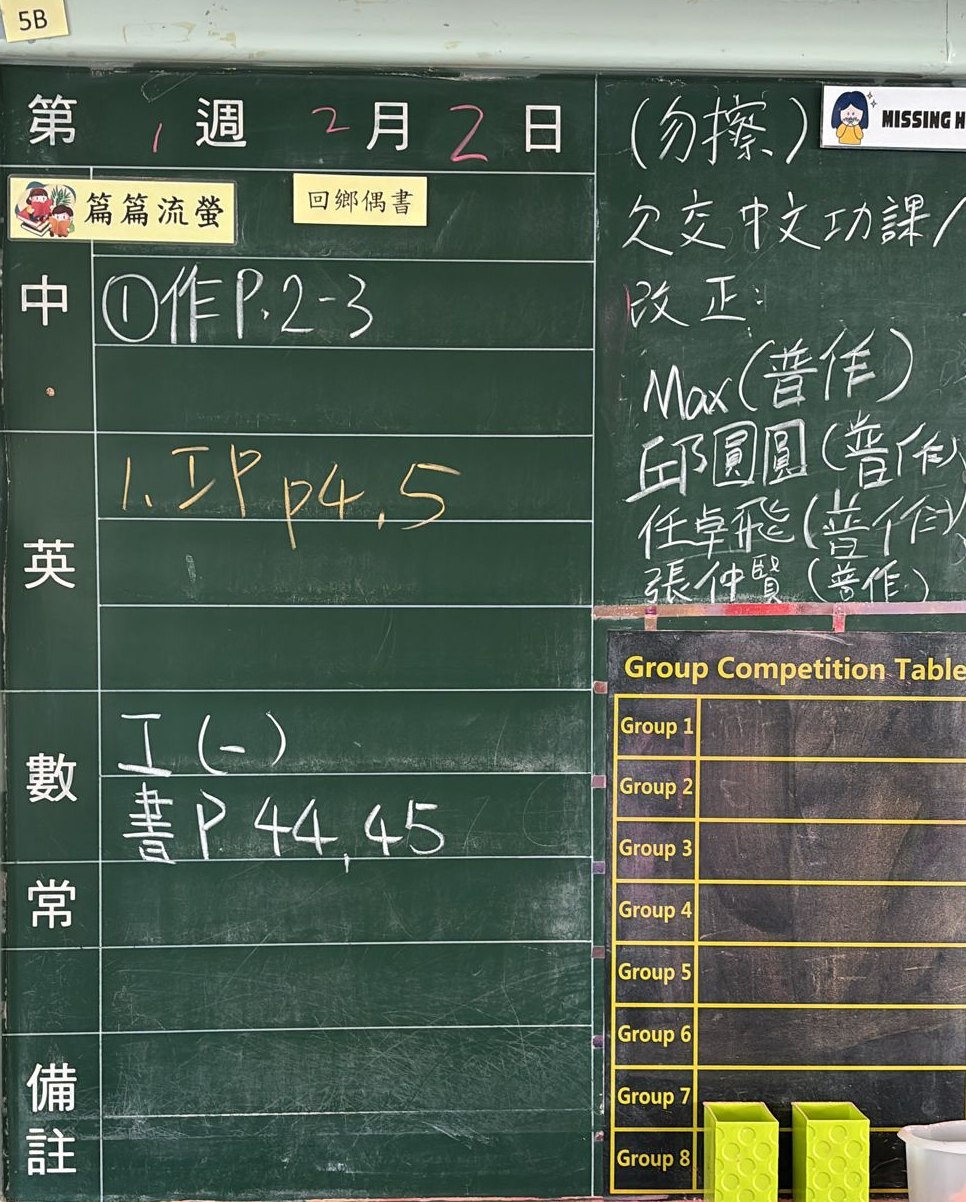 5B
第 1 週 2 月 2 日
篇篇流螢 回鄉偶書
中
①作P.2-3
英
1. IP p4,5
數
工(一)
書P 44,45
常
備註
(勿擦)
MISSING H
欠交中文功課/
改正:
Max(普作)
邱圓圓(普作)
任卓飛(普作)
張仲賢(普作)
Group Competition Table
Group 1
Group 2
Group 3
Group 4
Group 5
Group 6
Group 7
Group 8